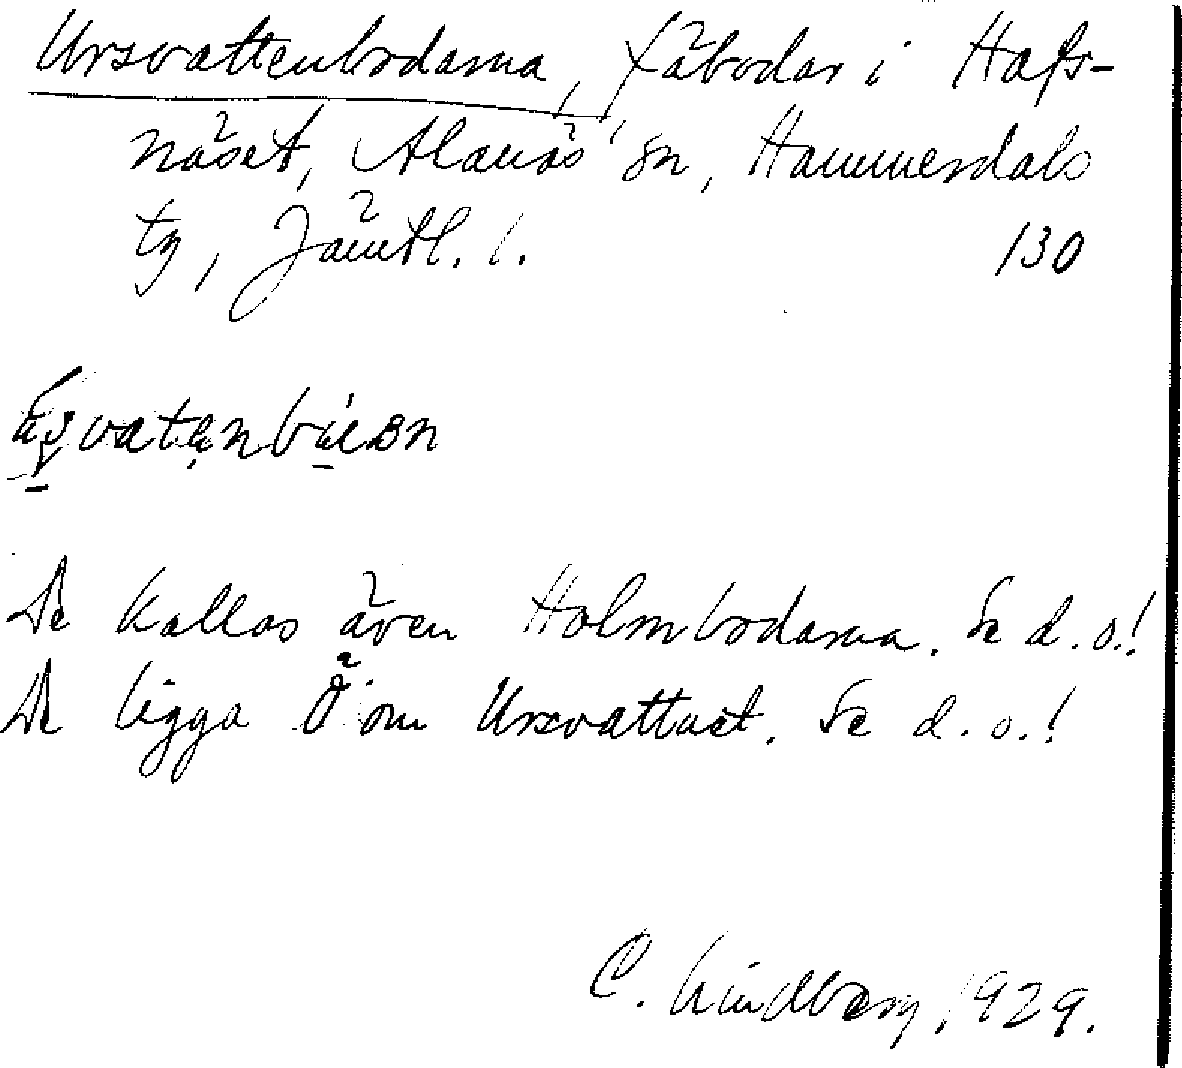 Ursvattenbodarna, fäbodar i Hafs-
näset, Alanäs sn, Hammerdals
tg, Jämtl. l. 130
De kallas även Holmbodarna. Se d. o.!
De ligga Ö om Ursvattnet. Se d. o.!
C. Lindberg, 1929.